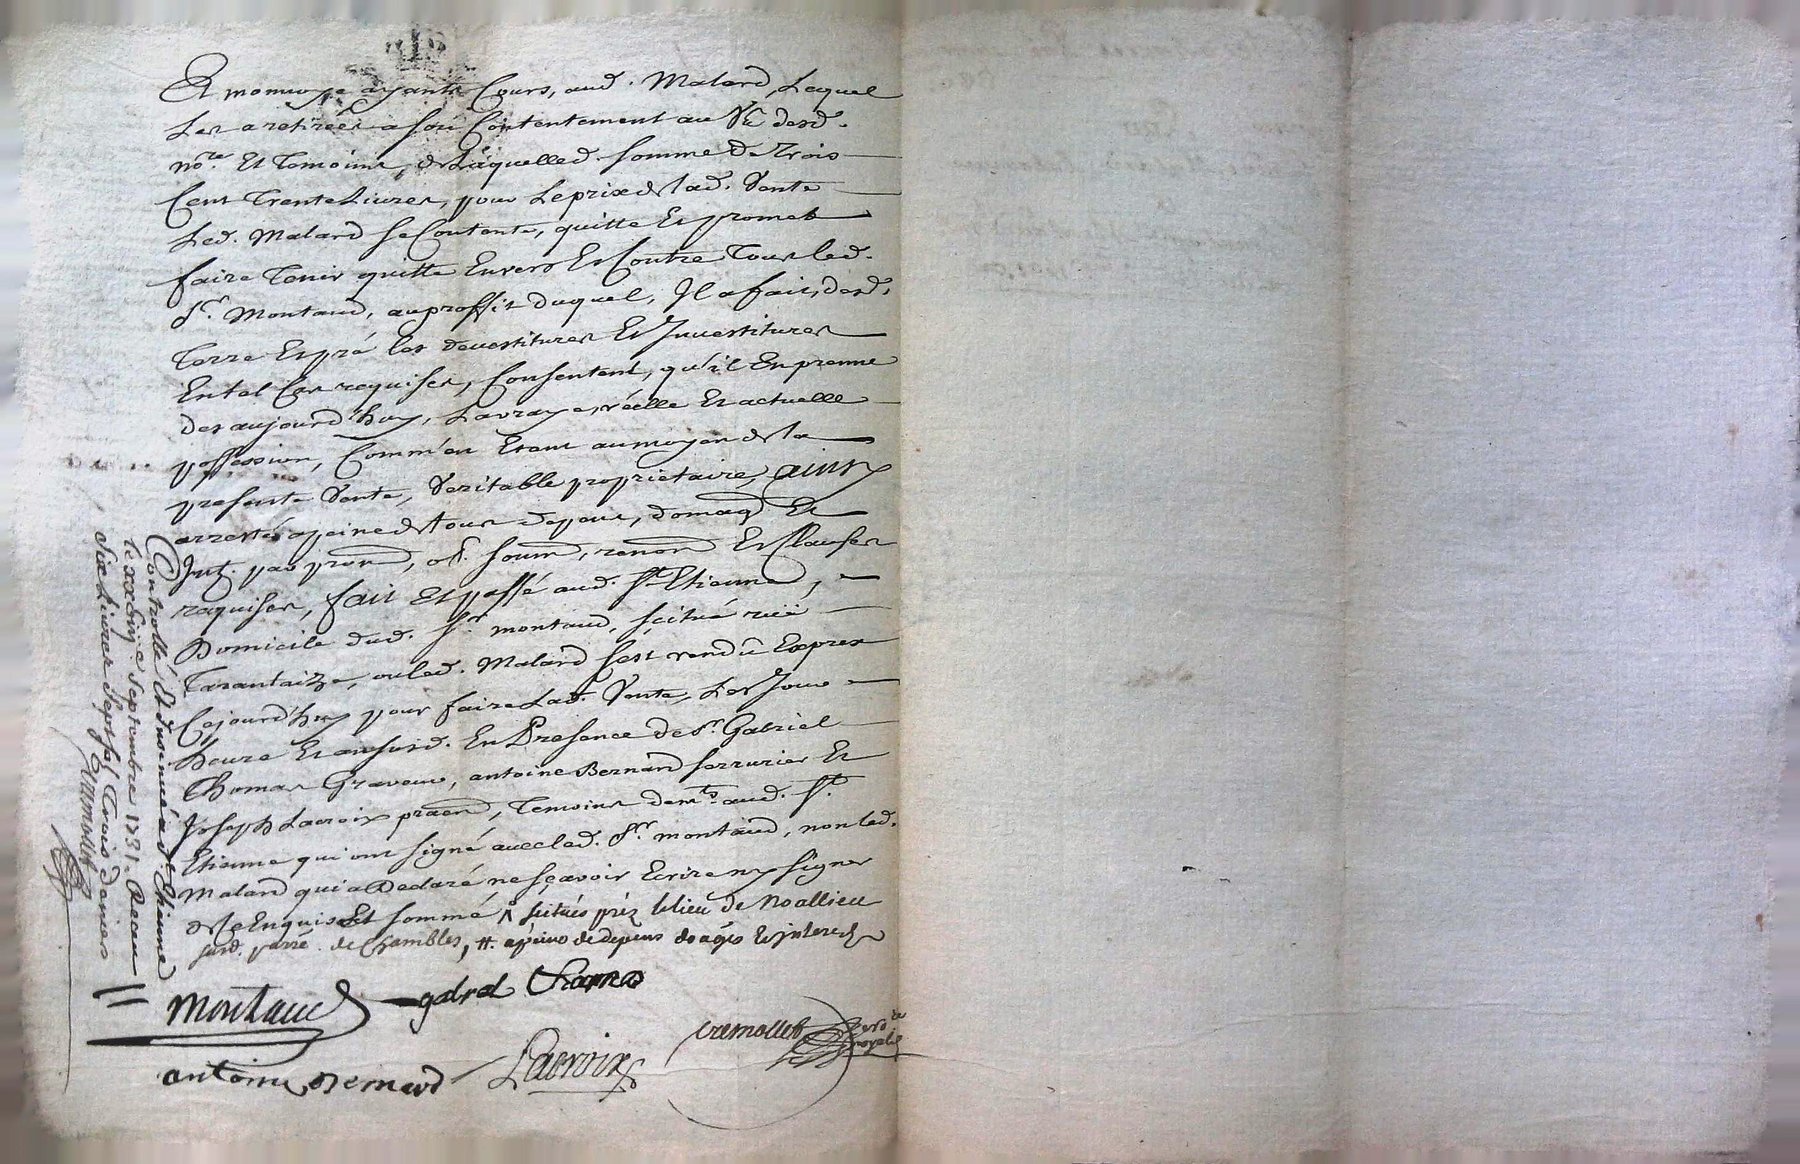 Et monnoye ayants Cours, aud. Malard, Lequel
Les a retirées a son Contentement au Vëu desd.
no.re Et Temoins, de Laquelle d. somme de Trois
Cent Trente Livres, pour Le prix de lad. Vente
Led. Malard se Contente, quitte Et promet
faire Tenir quitte Envers Et Contre Tous led.
Sr. Montaud, au proffit duquel, Il a fait, desd.
Terre Et pré les devestitures Et Investitures
En tel Cas requises, Consentant, qu'il En prenne
des aujourd'huy, La vraye, réelle Et actuelle
possession, Comm'en Etant au moyen de la
presente Vente, Veritable proprietaire, ainsy
arresté a peine de tous depens, domag. Et
Int. par prom, o. soum, renon Et Clauses
requises, fait Et passé aud. St. Etienne,
Domicile dud. Sr. montaud, scitué ruë
Tarantaize, ou led. Malard s'est rendû Expres
Cejourd'huy pour faire Lad. Vente, Les Jour
heure Et an susd. En Presence de Sr. Gabriel
Thomas Graveur, antoine Bernard serrurier Et
Joseph Lacroix praen, Temoins dem.ts aud. St.
Etienne qui ont signé avec led. Sr. montaud, non led.
Malard qui a Declaré ne sçavoir Ecrire ny signer
de ce Enquis Et sommé scitués préz le lieu de Noallieu
susd. parre. de Chambles, #. a peine de depens Et interest
Controllé Et Insinué a St. Etienne
le Sept.embre 1731. Receu
Six Livres Sept sols Trois deniers
Cremollet
Montaud
gabriel Thomas
antoine Bernard
Lacroix
Cremollet
no.re royal